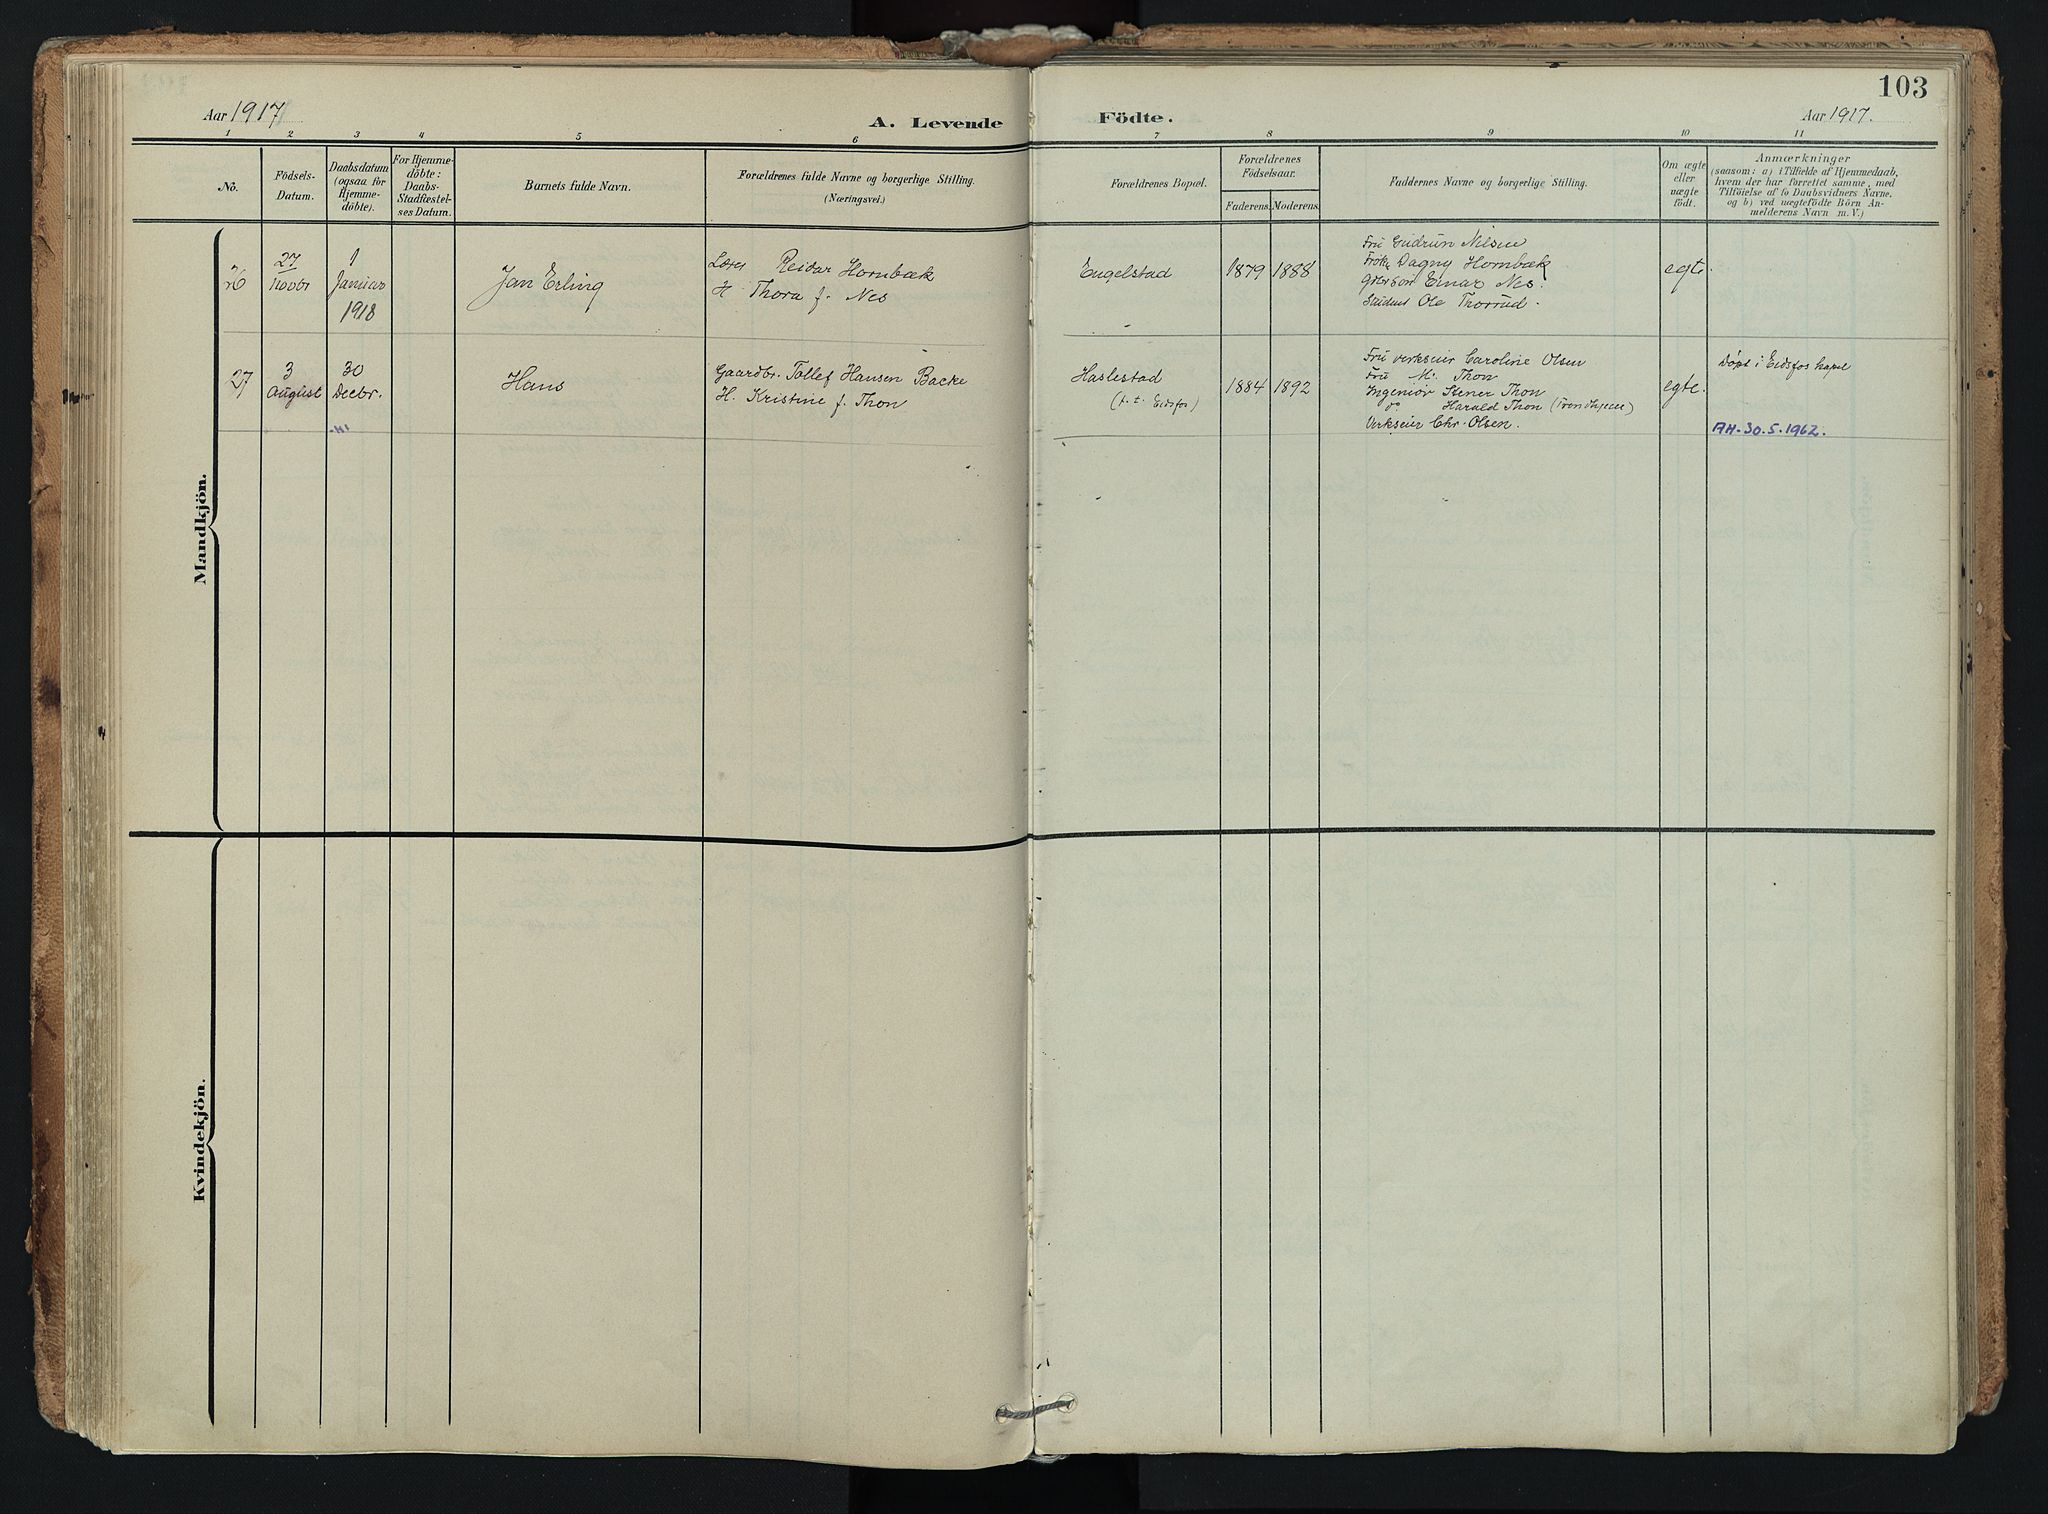 103
Aar 1917
A. Levende Födte.
Aar 1917.
1 2 3 4 5 6 7 8 9 10 11
No.
Födsels-
Datum.
Daabsdatum
(ogsaa for
Hjemme-
döbte).
For Hjemme-
döbte:
Daabs-
Stadfæstel-
ses Datum.
Barnets fulde Navn.
Forældrenes fulde Navne og borgerlige Stilling.
(Næringsvei.)
Forældrenes Bopæl.
Forældrenes
Födselsaar.
Faderens. Moderens.
Faddernes Navne og borgerlige Stilling.
Om ægte
eller
uægte
födt.
Anmærkninger
(saasom: a) i Tilfælde af Hjemmedaab,
hvem der har forrettet samme, med
Tilföielse af to Daabsvidners Navne,
og b) ved uægtefödte Börn An-
melderens Navn m. V.)
Mandkjön.
26
27
Novbr
1
Januar
1918
Jan Erling
Lærer Reidar Hornbæk
H. Thora f. Nes
Engelstad
1879 1888
Fru Gudrun Nilsen
Frøk. Dagny Hornbæk
Einar Nes.
Student Ole Thorrud.
egte.
27
3
August
30
Decbr.
Hans
Gaardbr. Tollef Hansen Backe
H. Kristine f. Thon
Haslestad
(p. t. Eidsfos)
1884 1892
Fru verkseier Caroline Olsen
Fru M. Thon
Ingeniør Stener Thon
do Harald Thon (Trondhjem)
Verkseier Chr. Olsen.
egte.
Døpt i Eidsfos kapel
AH. 30.5.1962.
Kvindekjön.